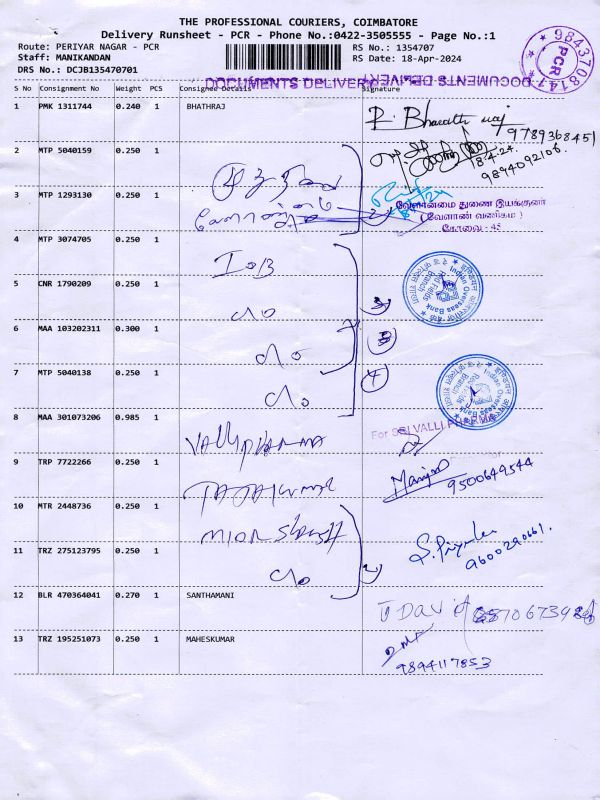 THE PROFESSIONAL COURIERS, COIMBATORE
Delivery Runsheet - PCR - Phone No.:0422-3505555 - Page No.:1
Route: PERIYAR NAGAR - PCR
RS No.: 1354707
Staff: MANIKANDAN
RS Date: 18-Apr-2024
DRS No.: DCJB135470701
9843708147
PCR
DOCUMENTS DELIVERY
DOCUMENTS DELIVERY
S No Consignment No Weight PCS Consignee Details Signature
1 PMK 1311744 0.240 1 BHATHRAJ
9789368451
2 MTP 5040159 0.250 1
18.4.24
9894092106.
3 MTP 1293130 0.250 1
வேளாண்மை துணை இயக்குனர்
( வேளாண் வணிகம் )
கோவை - 43
4 MTP 3074705 0.250 1 IOB
Indian Overseas Bank
5 CNR 1790209 0.250 1 do
6 MAA 103202311 0.300 1 do
3
7 MTP 5040138 0.250 1 do
Indian Overseas Bank
8 MAA 301073206 0.985 1 VALLIPHARMA
For SRI VALLI PHARMA
9 TRP 7722266 0.250 1
9500649544
10 MTR 2448736 0.250 1
11 TRZ 275123795 0.250 1 do
9600290661.
12 BLR 470364041 0.270 1 SANTHAMANI
13 TRZ 195251073 0.250 1 MAHESKUMAR
9894117853